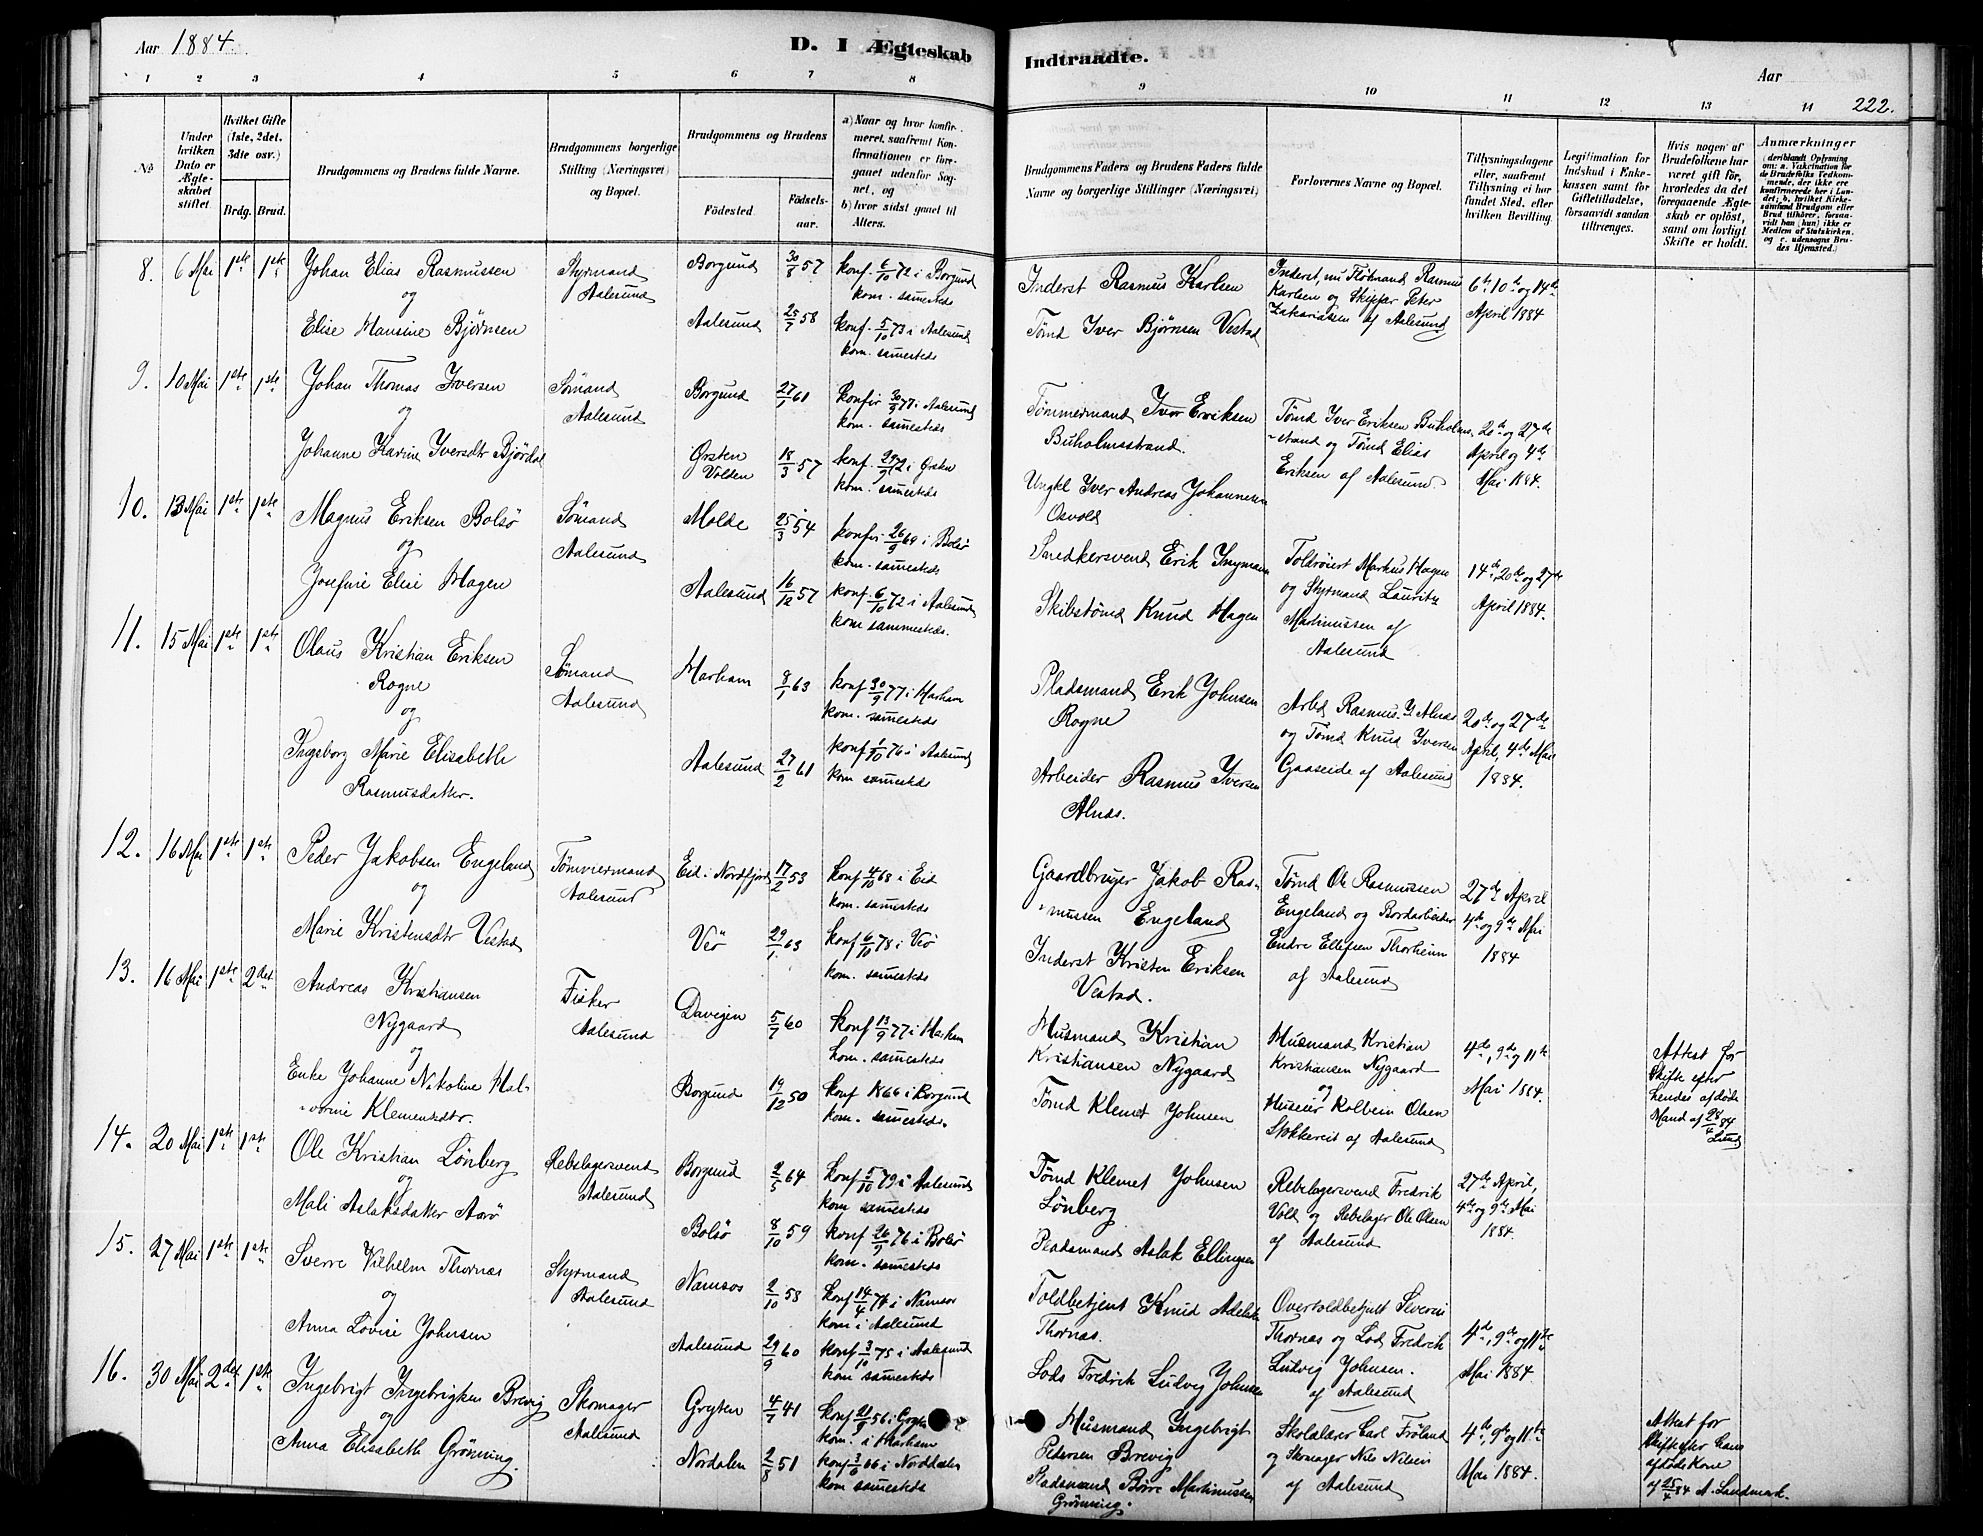 Aar 1884.
D. I Ægteskab
Indtraadte.
Aar
222.
1 2 3 4 5 6 7 8 9 10 11 12 13 14
No.
Under hvilken Dato er Ægteskabet stiftet.
Hvilket Gifte (1ste, 2det, 3dte osv.)
Brdg. Brud.
Brudgommens og Brudens fulde Navne.
Brudgommens borgerlige Stilling (Næringsvei) og Bopæl.
Brudgommens og Brudens
Fødested.
Fødselsaar.
a) Naar og hvor konfirmeret, saafremt Konfirmationen er foregaaet udenfor Sognet, og
b) hvor sidst gaaet til Alters.
Brudgommens Faders og Brudens Faders fulde Navne og borgerlige Stillinger (Næringsvei)
Forlovernes Navne og Bopæl.
Tillysningsdagene eller, saafremt Tillysning ei har fundet Sted, efter hvilken Bevilling.
Legitimation for Indskud i Enkekassen samt for Giftetilladelse, forsaavidt saadan tiltrænges.
Hvis nogen af Brudefolkene har været gift før, hvorledes da det foregaaende Ægteskab er opløst, samt om lovligt Skifte er holdt.
Anmærkninger
8. 6 Mai 1ste 1ste Johan Elias Rasmussen
og
Elise Hansine Bjørnsen
Styrmand Aalesund
Borgund 30/7 57 konf. 6/10 72 i Borgund
kom. samesteds
Aalesund 25/7 58 konf. 5/10 73 i Aalesund
kom. samesteds
Inderst Rasmus Karlsen
Tømd Iver Bjørnsen Vestad
Inderst, nu Fløtmand Rasmus
Karlsen og Skipper Peter
Zakariassen af Aalesund
6te, 10de og 14de
April 1884
9. 10 Mai 1ste 1ste Johan Thomas Iversen
og
Johanne Karine Iversdtr Bjørdal
Sømand
Aalesund
Borgund 27/1 61 konfir 30/9 77 i Aalesund
kom. samesteds
Ørsten
Volden 18/3 57 konf. 29/9 72 i Ørsten
kom. samesteds
Tømmermand Iver Eriksen
Buholmsstrand.
Ungkl Iver Andreas Johannesen
Osvold
Tømd Iver Eriksen Buholms-
strand og Tømd Elias
Eriksen af Aalesund.
20de og 27de
April og 4de
Mai 1884.
10. 13 Mai 1ste 1ste Magnus Eriksen Bolsø
og
Josefine Elise Hagen
Sømand
Aalesund
Molde 25/3 54 konfir 26/9 69 i Bolsø
kom. samesteds
Aalesund 16/12 57 konf. 6/10 72 i Aalesund
kom sammesteds.
Snedkersvend Erik Ingmann
Skibstømd Knud Hagen
Toldroiert Markus Hagen
og Styrmand Lauritz
Martinussen af
Aalesund
14de, 20de og 27de
April 1884.
11. 15 Mai 1ste 1ste Olaus Kristian Eriksen
Rogne
og
Ingeborg Marie Elisabeth
Rasmusdatter.
Sømand
Aalesund
Harham 8/1 63 konf 30/9 77 i Harham
kom. samesteds
Aalesund 27/2 61 konf 1/10 76 i Aalesund
kom samesteds
Pladsmand Erik Johnsen
Rogne
Arbeider Rasmus Iversen
Alnæs.
Arbd Rasmus I. Alnæs
og Tømd Knud Iversen
Gaaseide af Aalesund
20de og 27de
April, 4de Mai
1884.
12. 16 Mai 1ste 1ste Peder Jakobsen Engeland
og
Marie Kristensdtr Vestad
Tømmermand
Aalesund
Eid i Nordfjord 17/2 53 konf 4/10 68 i Eid
kom. samesteds
Veø 29/1 63 konf 6/10 78 i Veø
kom. samesteds
Gaardbruger Jakob Ras-
mussen Engeland
Inderst Kristen Eriksen
Vestad.
Tømd Ole Rasmussen
Engeland og Bordarbeider
Endre Ellefsen Thorheim
af Aalesund
27de April
4de og 9de Mai
1884
13. 16 Mai 1ste 2det Andreas Kristiansen
Nygaard
og
Enke Johanne Nikoline Hal-
vorine Klementsdtr.
Fisker
Aalesund
Davigen 5/7 60 konf 13/9 77 i Harham
kom. samesteds
Borgund 19/12 50 konf 1866 i Borgund
kom. samesteds.
Husmand Kristian
Kristiansen Nygaard
Tømd Klemet Johnsen
Husmand Kristian
Kristiansen Nygaard
og
Huseier Kolbein Olsen
Stokkereit af Aalesund
4de, 9de og 11te
Mai 1884.
Attest for
Skifte efter
hendes afdøde
Mand af 28/4 84
Lund
14. 20 Mai 1ste 1ste Ole Kristian Lønberg
og
Mali Aslaksdatter Aarø
Rebslagersvend
Aalesund
Borgund 2/5 64 konf 5/10 79 i Aalesund
kom samesteds
Bolsø 8/10 59 konf 26/9 76 i Bolsø
kom. samesteds
Tømd Klemet Johnsen
Lønberg
Pladsmand Aslak Ellingsen
Rebslagersvend Fredrik
Vold og Rebslager Ole Olsen
af Aalesund
27de April,
4de og 9de Mai
1884.
15. 27 Mai 1ste 1ste Sverre Vilhelm Thornæs
og
Anna Lovise Johnsen
Styrmand
Aalesund
Namsos 2/10 58 konf 14/4 74 i Namsos
kom i Aalesund
Aalesund 29/9 60 konf. 3/10 75 i Aalesund
kom samesteds
Toldbetjent Knud Adelsten
Thornæs.
Lods Fredrik Ludvig Johnsen
Overtoldbetjent Severin
Thornæs og Lods Fredrik
Ludvig Johnsen.
af Aalesund
4de, 9de og 11te
Mai 1884.
16. 30 Mai 2det 1ste Ingebrigt Ingebrigtsen Brevig
og
Anna Elisabeth Grønning.
Skomager
Aalesund
Gryten 4/7 41 konf 21/9 56 i Gryten
kom. i Harham
Nordalen 2/8 51 konf. 3/6 66 i Norddalen
kom samesteds
Husmand Ingebrigt
Pedersen Brevig
Pladsmand Børre Martinussen
Grønning.
Skolelærer Carl Frøland
og Skomager Nils Nilsen
af Aalesund
4de, 9de og 11te
Mai 1884.
Attest for
Skifte efter hans
afdøde Kone
af 25/4 84 A. Landmark.